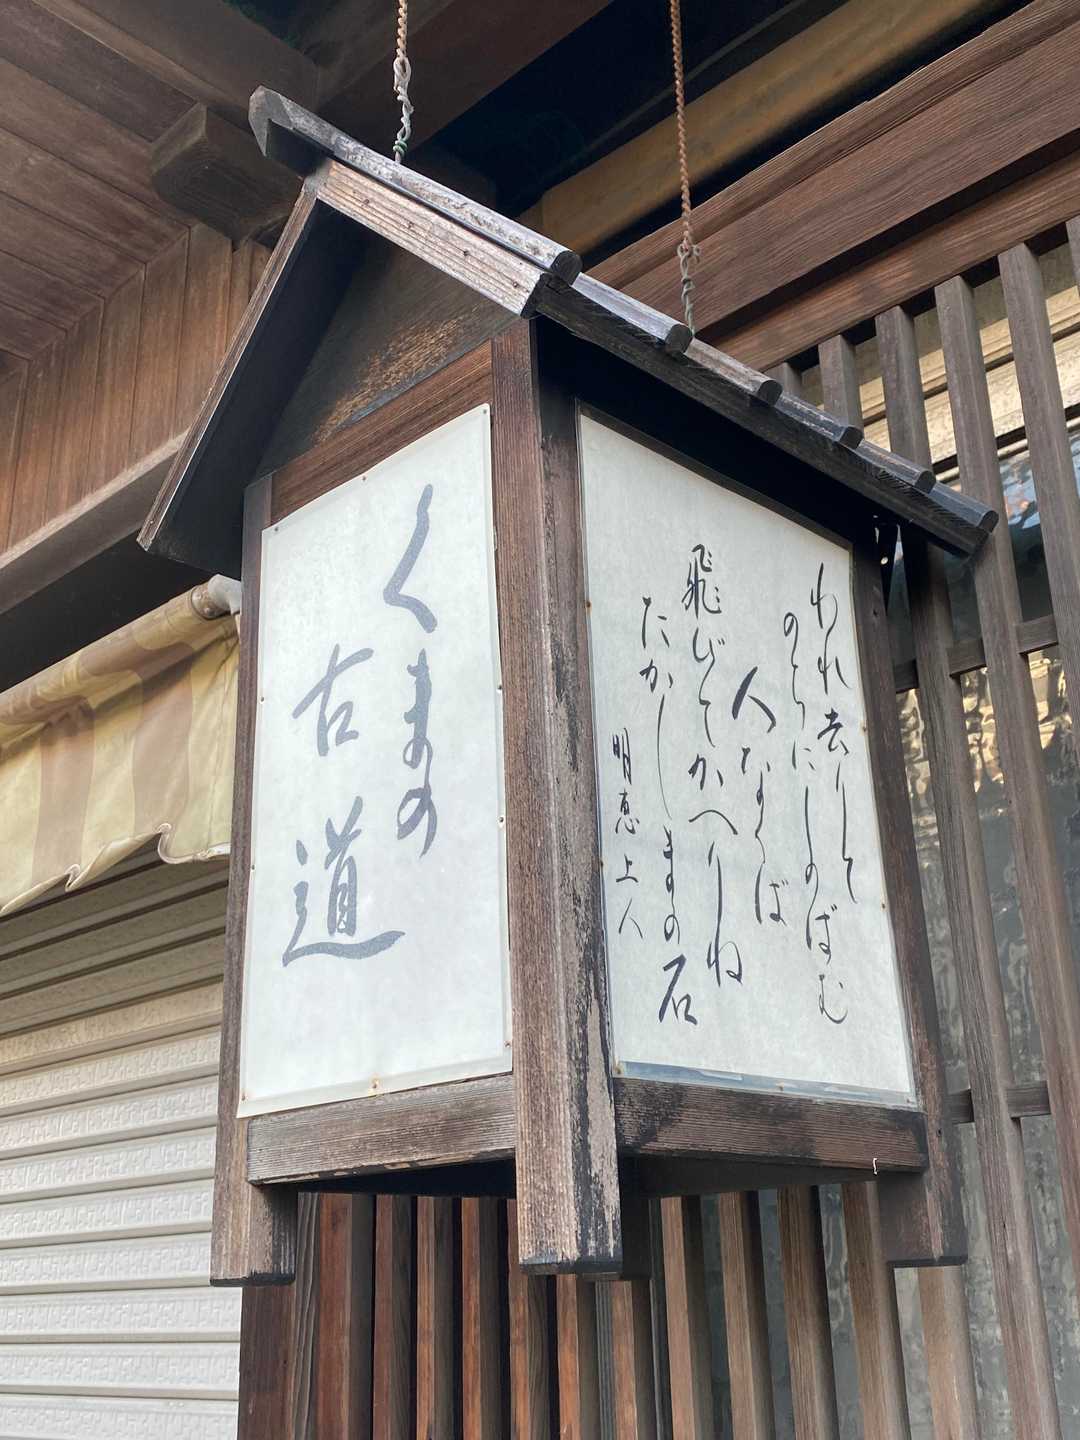 くまの
古道
われ去りて
のちにしのばむ
人なくば
飛びてかへりね
たかしまの石
明恵上人